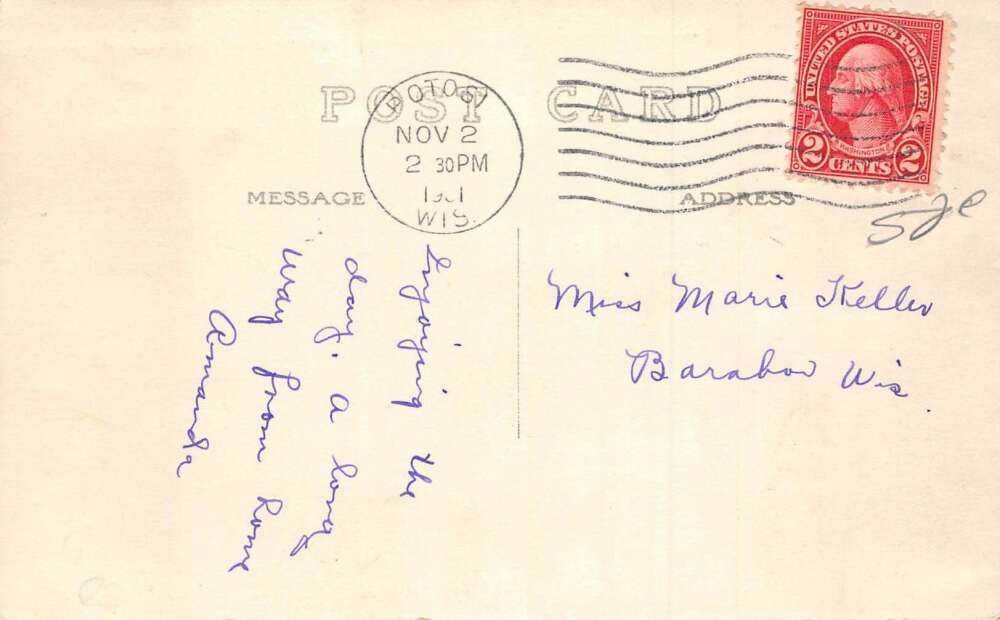 POST CARD
POTOSI
NOV 2
2 30 PM
WIS.
UNITED STATES POSTAGE
WASHINGTON
2 CENTS 2
MESSAGE
ADDRESS
Injoying the
day. a long
way from home
Amanda
Miss Marie Keller
Baraboo Wis.